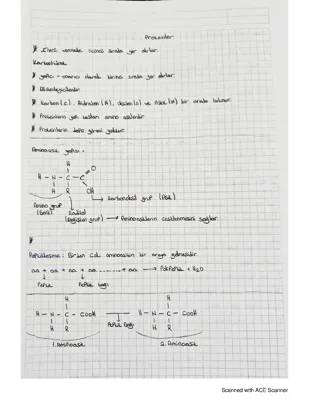 Proteinler
Enerji vermede üçüncü sırada yer alırlar.
Karbohidra
yapıcı - onarıcı olarak birinci sırada yer alır.
Düzenleyicilerdir
Karbon (C), Hidrojen (H), oksijen (O) ve Azot (N) bir arada bulunur.
Proteinlerin yapı taşları amino asitlerdir
Proteinlerin depo görevi yoktur.
Aminoasit yapısı -
H
H - N - C - C O
H R OH
karboksil grup (Asit)
Amino grup Radikal
(Baz) (Değişken grup) → Aminoasitlerin çeşitlenmesini sağlar.
Peptitleşme: Birden çok aminoasitin bir araya gelmesidir
aa + aa + aa + aa ........ + aa → Polipeptit + H2O
Peptit Peptit bağı
H H
H - N - C - COOH H - N - C - COOH
H R Peptit bağı H R
1. Aminoasit 2. Aminoasit
Scanned with ACE Scanner